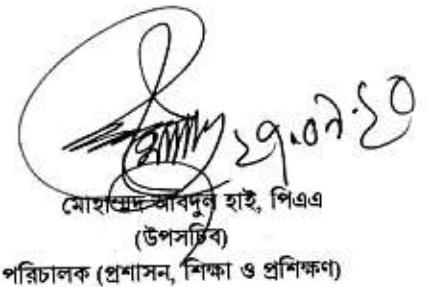 ২৭.০৭.২০
মোহাম্মদ আবদুল হাই, পিএএ
(উপসচিব)
পরিচালক (প্রশাসন, শিক্ষা ও প্রশিক্ষণ)